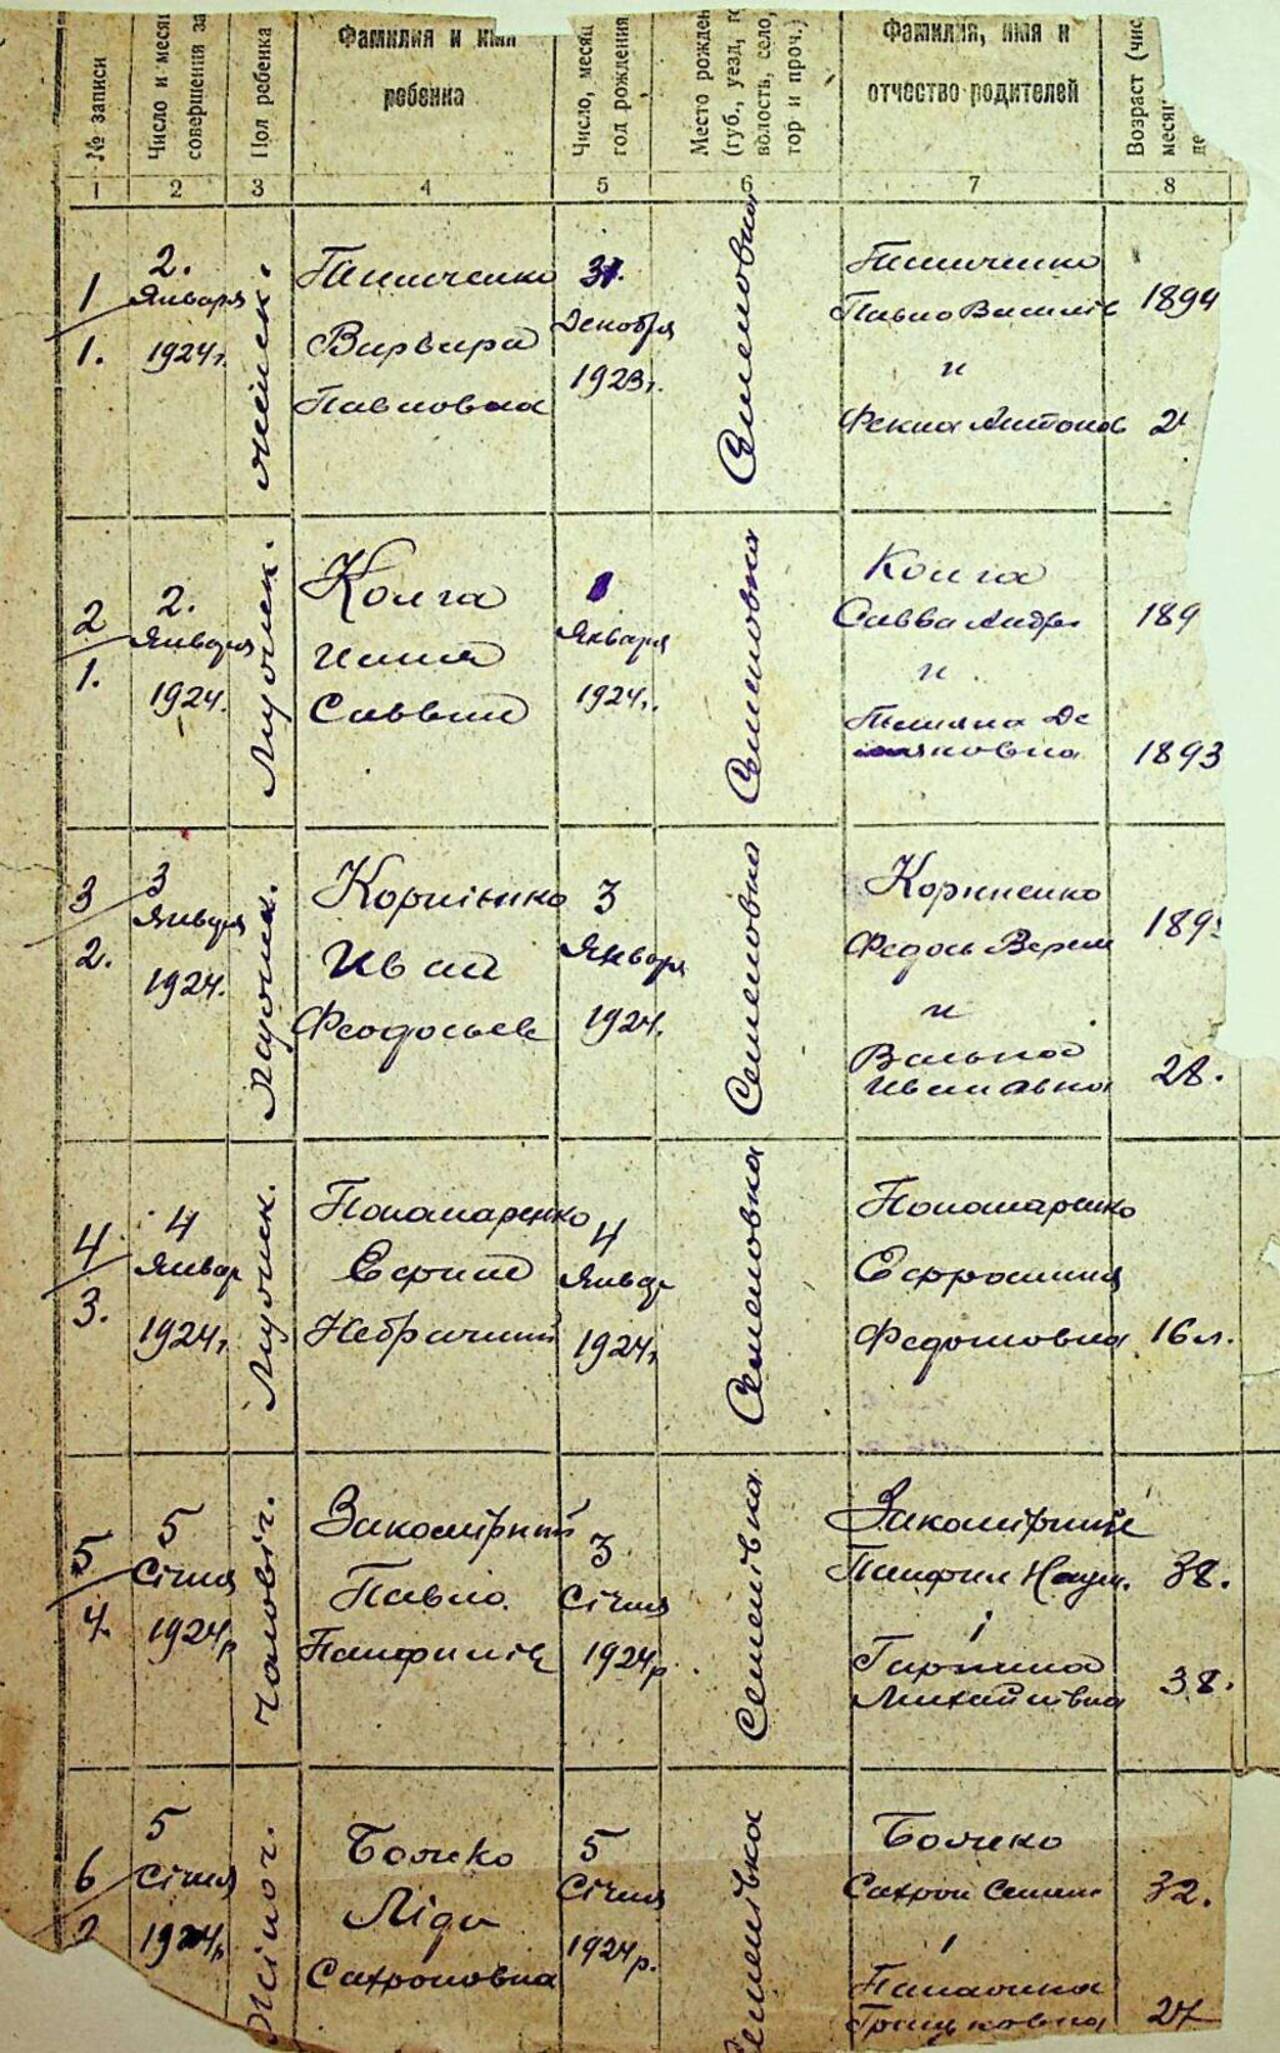 № записи
Число и меся
совершения за
Пол ребенка
Фамилия и имя
ребенка
Число, месяц
год рождения
Место рожден
(губ., уезд, г
волость, село,
тор и проч.)
Фамилия, имя и
отчество родителей
Возраст (чис
месяц
де
1 2 3 4 5 6 7 8
1
1.
2.
Января
1924г.
женск.
Варвара
Павловна
31.
Декабря
1923г.
Семеновка
Павло Василів
и
Фекла Антонов
1894
2
1.
2.
Января
1924.
Мужск.
Колга
Илия
Саввин
1
Января
1924г.
Семеновка
Колга
Савва Андр
и
189
1893
3
2.
3
Января
1924.
Мужск.
Корнієнко
Иван
Феодосьев
3
Января
1924.
Семеновка
Корниенко
Федось
и
Ивановна
189
28.
4
3.
4
Январ
1924г.
Мужск.
Пономаренко
4
Январ
1924г.
Семеновка
Пономаренко
Ефросиния
Федотовна
16 л.
5
4.
5
Січня
1924р
чоловіч.
Закомірний
Павло.
Панфилів
3
Січня
1924р.
Семенівка.
Закомірний
Панфил Наум.
і
Гарпина
Михайлівна
38.
38.
6
2
5
Січня
1924р
Жіноч.
Божко
Ліда
Сахроновна
5
Січня
1924р.
Семенівка
Божко
Сахрон Семен
і
32.
27